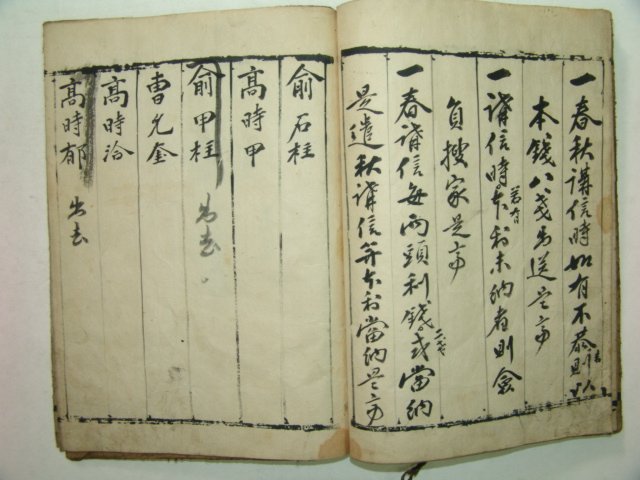 一春秋講信時如有不恭則以
本錢八戔出送是齊
一講信時若有本利未納者則僉
負搜家是齊
一春講信每兩頭利錢二戔式當納
是遣秋講信並本利當納是齊
俞石柱
高時甲
俞甲柱 出去
曹允奎
高時洽
高時郁 出去